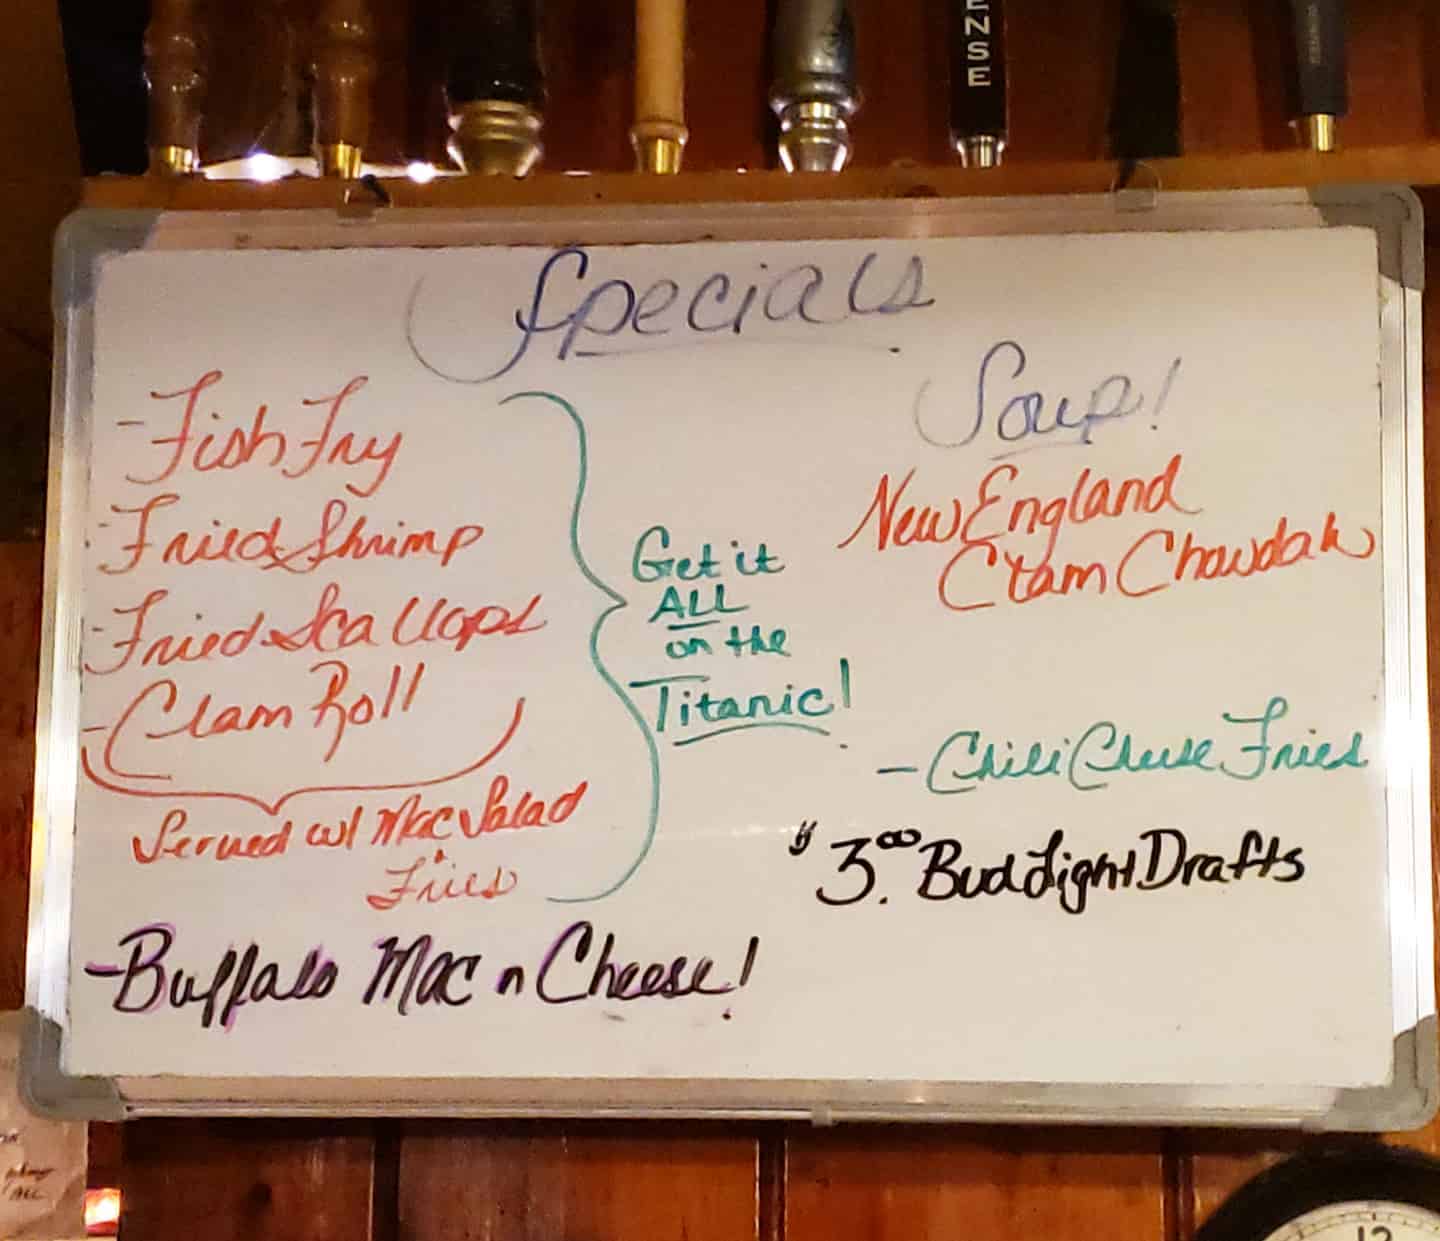 ENSE
Specials
- Fish Fry
- Fried Shrimp
- Fried Scallops
- Clam Roll
Served w/ Mac Salad
Fries
Get it
ALL
on the
Titanic!
- Buffalo Mac n Cheese!
Soup!
New England
Clam Chowdah
- Chili Cheese Fries
$3.00 Bud Light Drafts
12
ALL